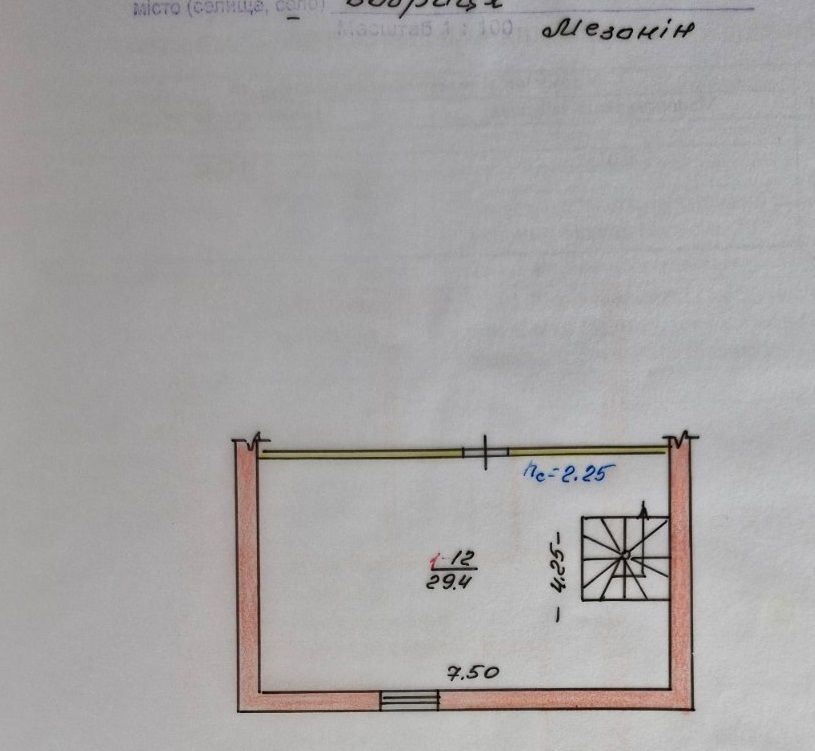 місто (селище, село)
Масштаб 1 : 100 Мезонін
hс=2.25
1-12
29.4
- 4.25 -
7.50